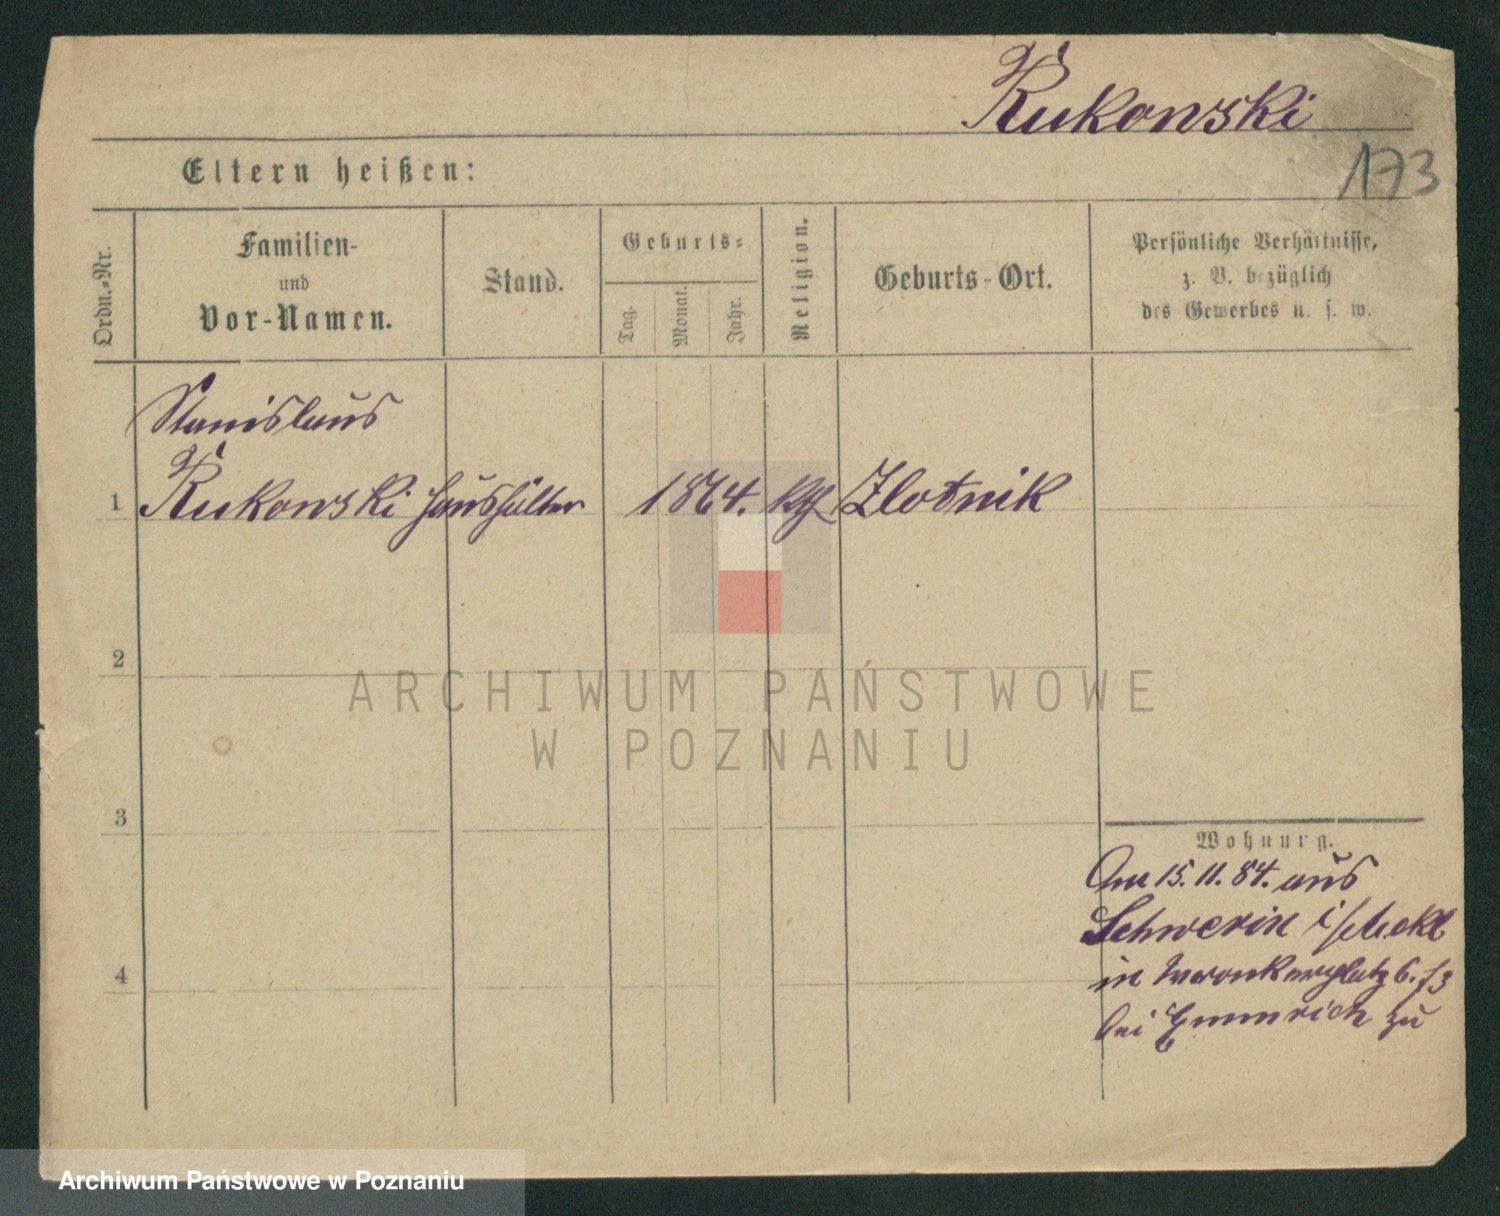 Rukowski
173
Eltern heißen:
Ordn.-Nr.
Familien-
und
Vor-Namen.
Stand.
Geburts-
Tag.
Monat.
Jahr.
Religion.
Geburts-Ort.
Persönliche Verhältnisse,
z. B. bezüglich
des Gewerbes u. s. w.
Stanislaus
1 Rukowski Haushälter 1864. kth Zlotnik
2
3
4
Wohnung.
Am 15. 11. 84. aus
Schwerin i/Meckl
in Wronkerplatz 6.
bei Emmrich zu
ARCHIWUM PAŃSTWOWE
W POZNANIU
Archiwum Państwowe w Poznaniu